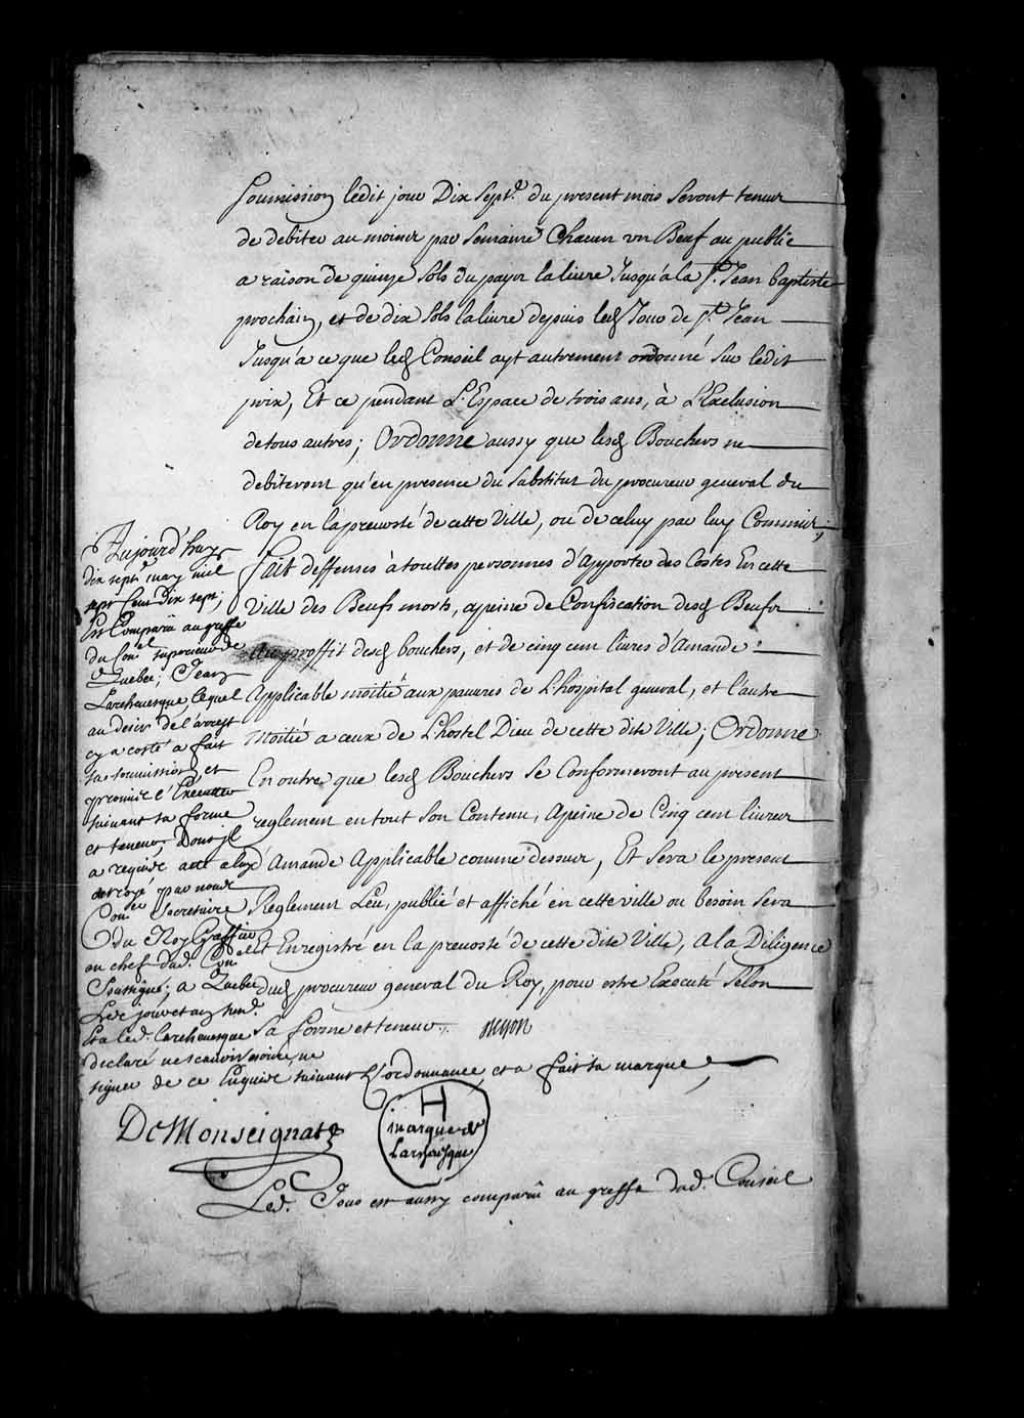 soumission ledit jour Dix sept.e du present mois seront tenus
de debiter au moins par semaine Chacun un Beuf au public
a raison de quinze sols du payis la livre Jusqu'a la St. Jean baptiste
prochain, et de dix sols la livre depuis led Jour de St. Jean
Jusqu'a ce que led Conseil ayt autrement ordonné sur ledit
prix, Et ce pendant L'Espace de trois ans, à L'Exclusion
de tous autres; Ordonne aussy que lesd Bouchers ne
debiteront qu'en presence du substitut du procureur general du
Roy en la prevosté de cette Ville, ou de celuy par luy Commis,
fait deffenses à touttes personnes d'Apporter des Costes En cette
Ville des Beufs morts, apeine de Confiscation desd Beufs
Au proffit desd bouchers, et de cinq cent livres d'Amande
Applicable moitié aux pauvres de L'hospital general, et l'autre
Moitié a ceux de L'hostel Dieu de cette dite Ville; Ordonne
En outre que lesd Bouchers se Conformeront au present
reglement en tout son Contenu, Apeine de Cinq cent livres
d'Amande Applicable comme dessus, Et sera le present
Reglement Leu, publié et affiché en cette ville ou besoin sera
Et Enregistré en la prevosté de cette dite Ville, A la Diligence
dud procureur general du Roy, pour estre Executé selon
sa forme et teneur.
Aujourd'huy
dix sept.e may mil
sept Cent Dix sept;
Est Comparu au greffe
du Con.el superieur de
Quebec; Jean
Larchevesque lequel
au desir de l'arrest
cy a costé a fait
sa soumission et
promis l'Executer
suivant sa forme
et teneur, Dont il
a requis acte a luy
octroyé par nous
Con.er secretaire
du Roy Greffier
en chef dud. Con.el
Soussigné; a Quebec
Les jour et an susd.
Et a led. larchevesque
declaré ne scavoir ecrire ne
signer de ce Enquis suivant L'ordonnance, et a fait sa marque
H
marque de
larchevesque
DeMonseignat
Led. Jour est aussy comparu au greffe dud. Conseil